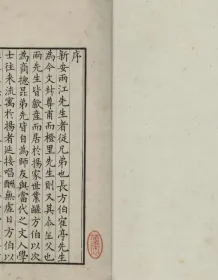 序
新安兩江先生者從兄弟也長方伯雀亭先生
為今文封尊甫而橙里先生則又其本生父也
兩先生皆歙產而居於揚家世業鹺方伯以次
為商摠昆弟先皆自為師友與當代之文人學
士往来流寓於揚者延接唱酬無虚日方伯以